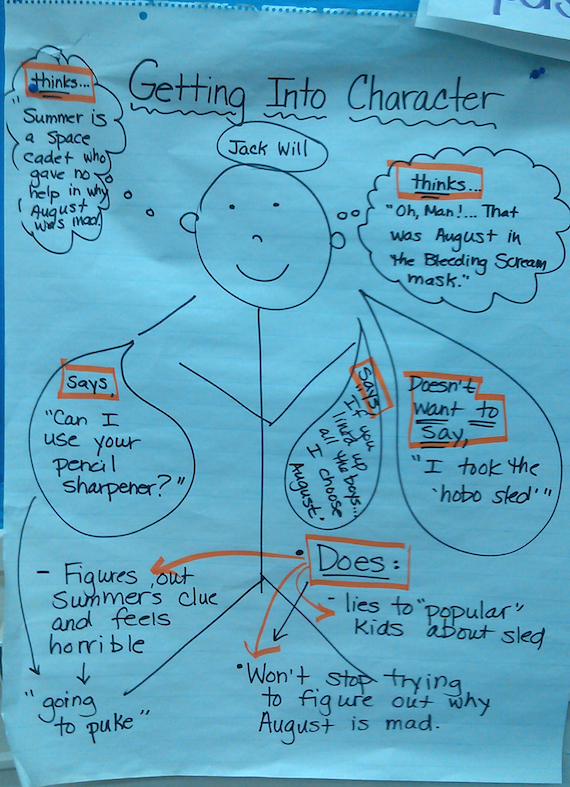 Getting Into Character
Jack Will
thinks...
"Summer is
a space
cadet who
gave no
help in why
August
was mad.
thinks...
"Oh, Man!... That
was August in
the Bleeding Scream
mask."
says,
"Can I
use your
pencil
sharpener?"
says,
"If you
lined up
all the boys...
I choose
August.
Doesn't
want to
say,
"I took the
'hobo sled'"
• Does:
- Figures out
Summer's clue
and feels
horrible
"going
to puke"
- lies to "popular"
kids about sled
• Won't stop trying
to figure out why
August is mad.